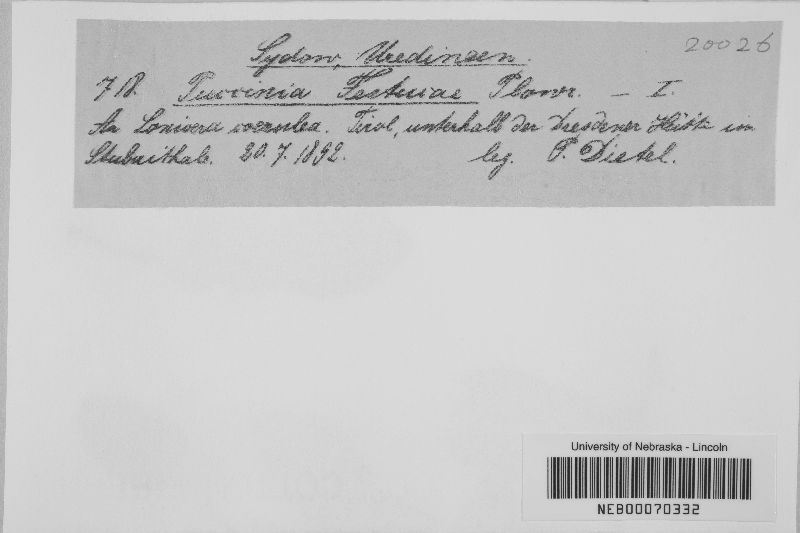 20026
Sydow, Uredineen.
718. Puccinia Festucae Plowr. — I.
An Lonicera coerulea. Tirol, unterhalb der Dresdener Hütte im
Stubaithale. 20.7.1892. leg. P. Dietel.
University of Nebraska - Lincoln
NEB00070332